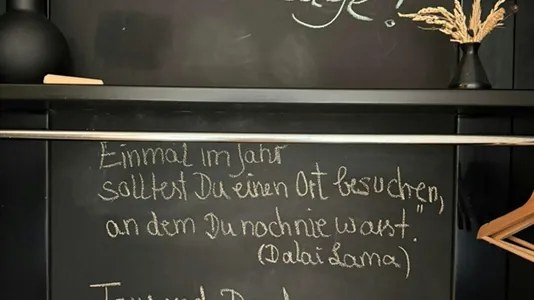 Einmal im Jahr
solltest Du einen Ort besuchen,
an dem Du noch nie warst."
(Dalai Lama)